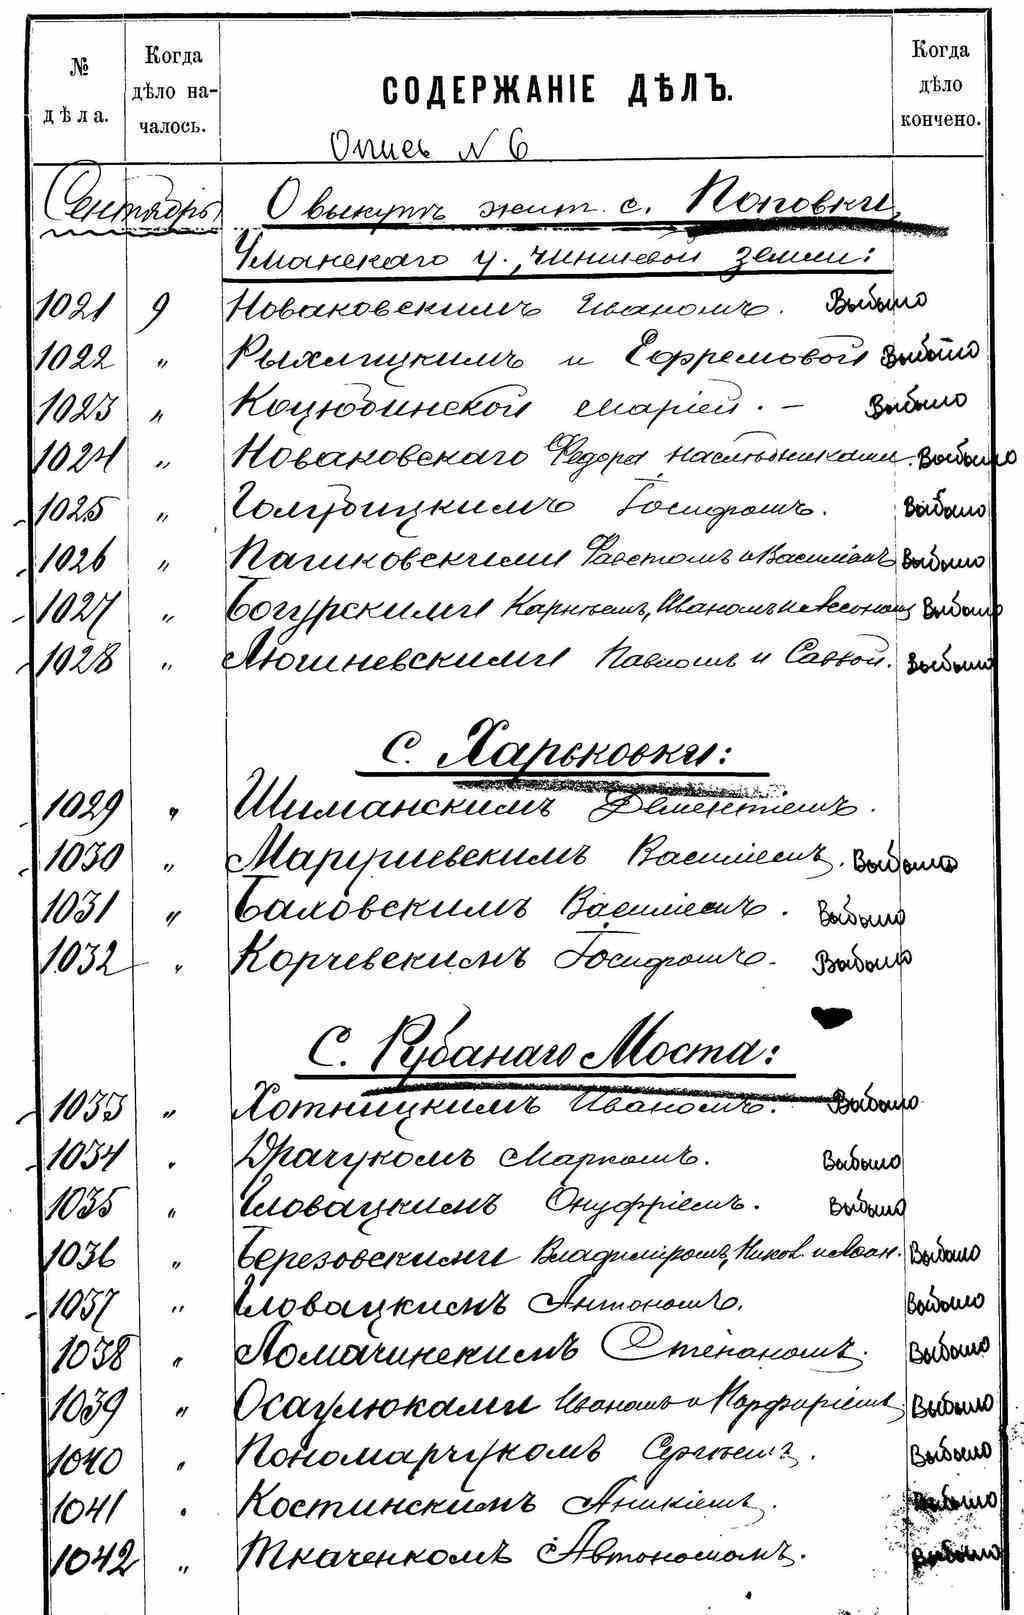 № дѣла.
Когда дѣло на-
чалось.
СОДЕРЖАНІЕ ДѢЛЪ.
Когда дѣло кончено.
Опись N 6
Сентябрь
О выкупѣ жит. с. Поповки,
Уманскаго у., чиншевой земли:
1021 9 Новаковскимъ Иваномъ. Выбыло
1022 „ Рыхлицкимъ и Ефремовой Выбыло
1023 „ Коцюбинской Маріей. – Выбыло
1024 „ Новаковскаго Федора наслѣдниками. Выбыло
1025 „ Голубицкимъ Іосифомъ. Выбыло
1026 „ Пашковскими Фавстомъ и Василіемъ Выбыло
1027 „ Богурскими Карпомъ, Иваномъ и Выбыло
1028 „ Люшневскими Павломъ и Саввой. Выбыло
С. Харьковки:
1029 „ Шиманскимъ Дементіемъ.
1030 „ Марушевскимъ Василіемъ. Выбыло
1031 „ Баковскимъ Василіемъ. Выбыло
1032 „ Корчевскимъ Іосифомъ. Выбыло
С. Рубанаго Моста:
1033 „ Хотницкимъ Иваномъ. Выбыло
1034 „ Драчукомъ Маркомъ. Выбыло
1035 „ Иловацкимъ Онуфріемъ. Выбыло
1036 „ Березовскими Владиміромъ, Никол. и Выбыло
1037 „ Иловацкимъ Антономъ. Выбыло
1038 „ Ломачинскимъ Степаномъ. Выбыло
1039 „ Осаулюками Иваномъ и Порфиріемъ. Выбыло
1040 „ Пономарчукомъ Сергѣемъ. Выбыло
1041 „ Костинскимъ Аникіемъ. Выбыло
1042 „ Ткаченкомъ Автономомъ. Выбыло